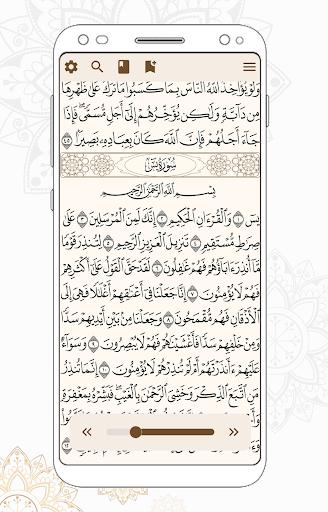 وَلَوْ يُؤَاخِذُ ٱللَّهُ ٱلنَّاسَ بِمَا كَسَبُوا۟ مَا تَرَكَ عَلَىٰ ظَهْرِهَا
مِن دَآبَّةٍ وَلَٰكِن يُؤَخِّرُهُمْ إِلَىٰٓ أَجَلٍ مُّسَمًّى ۖ فَإِذَا
جَآءَ أَجَلُهُمْ فَإِنَّ ٱللَّهَ كَانَ بِعِبَادِهِۦ بَصِيرًۢا ٤٥
سُورَةُ يسٓ
بِسْمِ ٱللَّهِ ٱلرَّحْمَٰنِ ٱلرَّحِيمِ
يسٓ ١ وَٱلْقُرْءَانِ ٱلْحَكِيمِ ٢ إِنَّكَ لَمِنَ ٱلْمُرْسَلِينَ ٣ عَلَىٰ
صِرَٰطٍ مُّسْتَقِيمٍ ٤ تَنزِيلَ ٱلْعَزِيزِ ٱلرَّحِيمِ ٥ لِتُنذِرَ قَوْمًا
مَّآ أُنذِرَ ءَابَآؤُهُمْ فَهُمْ غَٰفِلُونَ ٦ لَقَدْ حَقَّ ٱلْقَوْلُ عَلَىٰٓ أَكْثَرِهِمْ
فَهُمْ لَا يُؤْمِنُونَ ٧ إِنَّا جَعَلْنَا فِىٓ أَعْنَٰقِهِمْ أَغْلَٰلًا فَهِىَ إِلَى
ٱلْأَذْقَانِ فَهُم مُّقْمَحُونَ ٨ وَجَعَلْنَا مِنۢ بَيْنِ أَيْدِيهِمْ سَدًّا
وَمِنْ خَلْفِهِمْ سَدًّا فَأَغْشَيْنَٰهُمْ فَهُمْ لَا يُبْصِرُونَ ٩ وَسَوَآءٌ
عَلَيْهِمْ ءَأَنذَرْتَهُمْ أَمْ لَمْ تُنذِرْهُمْ لَا يُؤْمِنُونَ ١٠ إِنَّمَا تُنذِرُ
مَنِ ٱتَّبَعَ ٱلذِّكْرَ وَخَشِىَ ٱلرَّحْمَٰنَ بِٱلْغَيْبِ ۖ فَبَشِّرْهُ بِمَغْفِرَةٍ